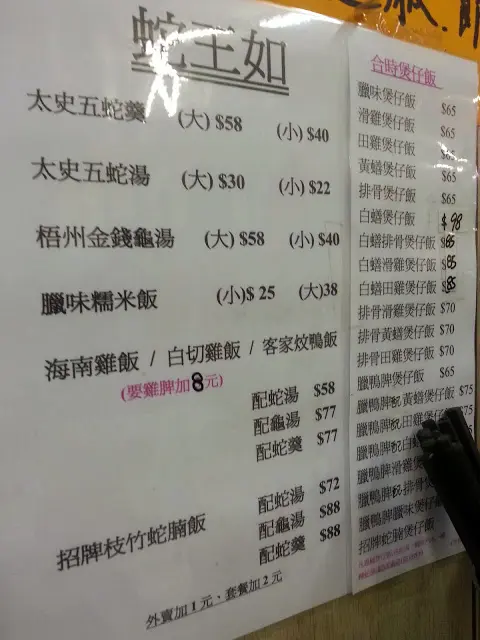 蛇王如
太史五蛇羹 (大) $58 (小) $40
太史五蛇湯 (大) $30 (小) $22
梧州金錢龜湯 (大) $58 (小) $40
臘味糯米飯 (小)$ 25 (大)38
海南雞飯 / 白切雞飯 / 客家炆鴨飯
(要雞脾加8元)
配蛇湯 $58
配龜湯 $77
配蛇羹 $77
招牌枝竹蛇腩飯
配蛇湯 $72
配龜湯 $88
配蛇羹 $88
外賣加1元、套餐加2元
合時煲仔飯
臘味煲仔飯 $65
滑雞煲仔飯 $65
田雞煲仔飯 $65
黃鱔煲仔飯 $65
排骨煲仔飯 $65
白鱔煲仔飯 $98
白鱔排骨煲仔飯 $85
白鱔滑雞煲仔飯 $85
白鱔田雞煲仔飯 $85
排骨滑雞煲仔飯 $70
排骨黃鱔煲仔飯 $70
排骨田雞煲仔飯 $70
臘鴨脾煲仔飯 $65
臘鴨脾配黃鱔煲仔飯 $75
臘鴨脾配田雞煲仔 $75
臘鴨脾配白
臘鴨脾滑雞煲
臘鴨脾配排骨
臘鴨脾臘味煲仔
招牌蛇腩煲仔飯